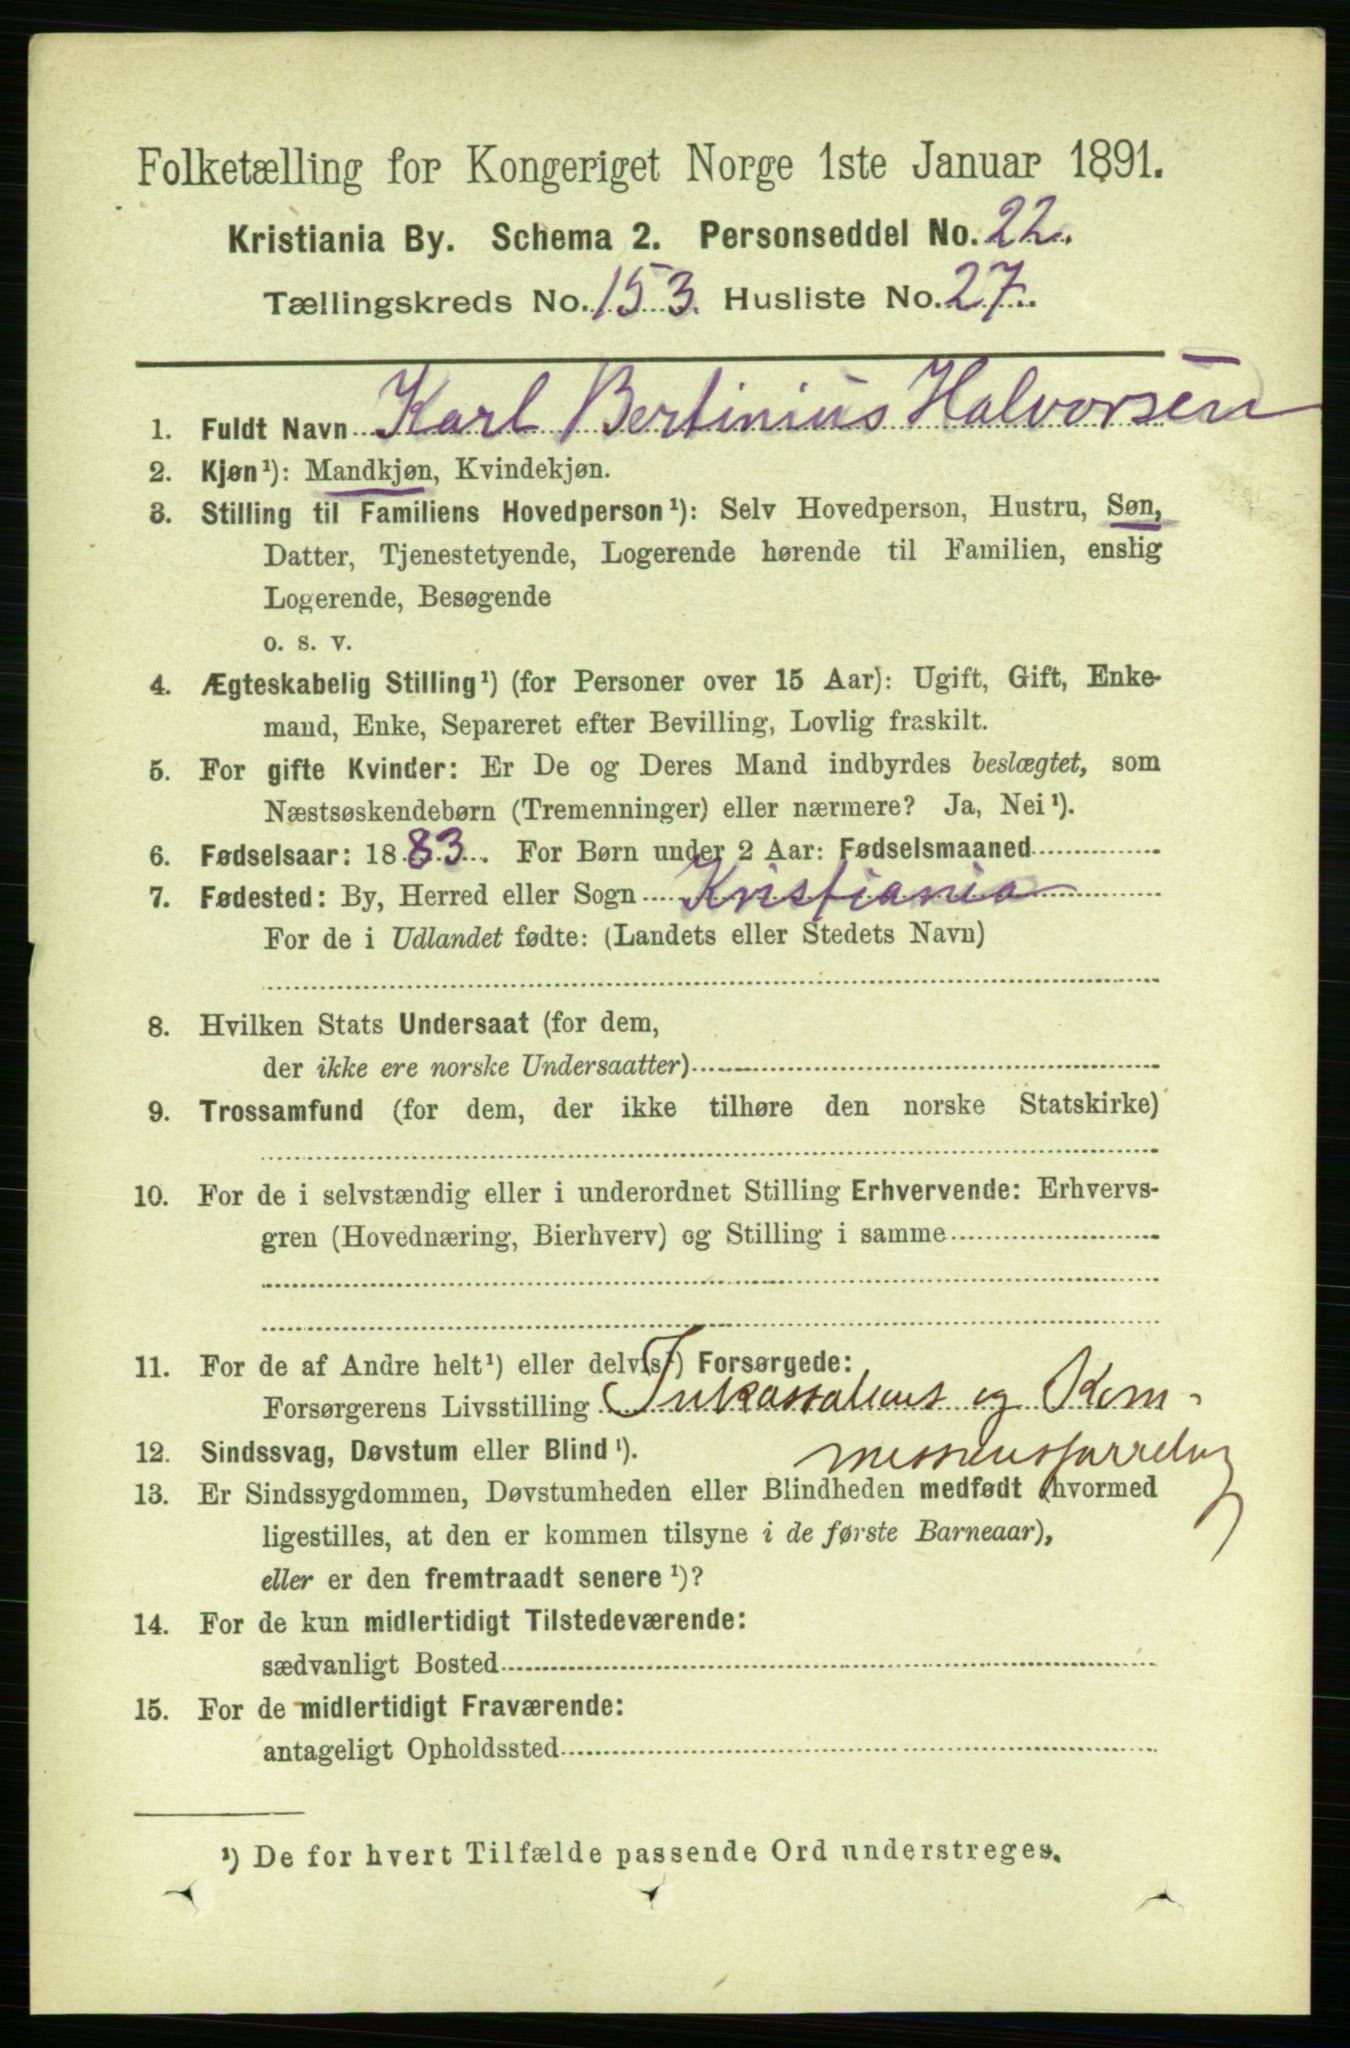 Folketælling for Kongeriget Norge 1ste Januar 1891.
Kristiania By. Schema 2. Personseddel No. 22.
Tællingskreds No. 153. Husliste No. 27.
1. Fuldt Navn Karl Bertinius Halvorsen
2. Kjøn¹): Mandkjøn, Kvindekjøn.
3. Stilling til Familiens Hovedperson¹): Selv Hovedperson, Hustru, Søn,
Datter, Tjenestetyende, Logerende hørende til Familien, enslig
Logerende, Besøgende
o. s. v.
4. Ægteskabelig Stilling¹) (for Personer over 15 Aar): Ugift, Gift, Enke-
mand, Enke, Separeret efter Bevilling, Lovlig fraskilt.
5. For gifte Kvinder: Er De og Deres Mand indbyrdes beslægtet, som
Næstsøskendebørn (Tremenninger) eller nærmere? Ja, Nei¹).
6. Fødselsaar: 1883. For Børn under 2 Aar: Fødselsmaaned
7. Fødested: By, Herred eller Sogn Kristiania
For de i Udlandet fødte: (Landets eller Stedets Navn)
8. Hvilken Stats Undersaat (for dem,
der ikke ere norske Undersaatter)
9. Trossamfund (for dem, der ikke tilhøre den norske Statskirke)
10. For de i selvstændig eller i underordnet Stilling Erhvervende: Erhvervs-
gren (Hovednæring, Bierhverv) og Stilling i samme
11. For de af Andre helt¹) eller delvis¹) Forsørgede:
Forsørgerens Livsstilling og Kom-
12. Sindssvag, Døvstum eller Blind¹).
13. Er Sindssygdommen, Døvstumheden eller Blindheden medfødt (hvormed
ligestilles, at den er kommen tilsyne i de første Barneaar),
eller er den fremtraadt senere¹)?
14. For de kun midlertidigt Tilstedeværende:
sædvanligt Bosted
15. For de midlertidigt Fraværende:
antageligt Opholdssted
¹) De for hvert Tilfælde passende Ord understreges.